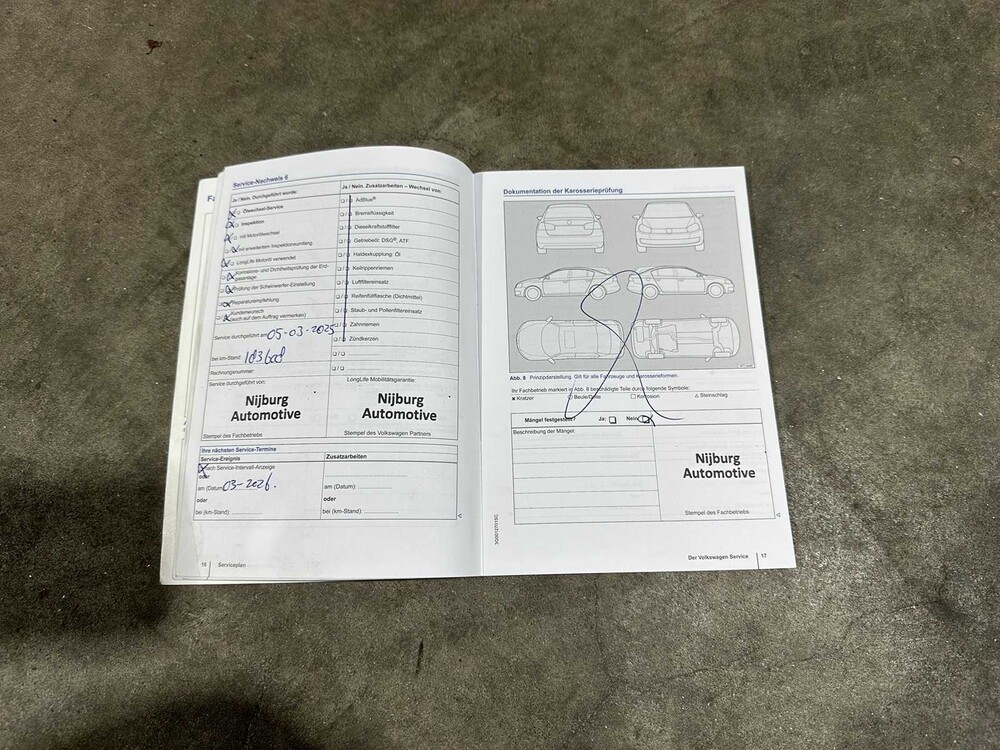 Fa
Service-Nachweis 6
Ja / Nein. Durchgeführt wurde:
Ölwechsel-Service
Inspektion
mit Motorölwechsel
mit erweitertem Inspektionsumfang
LongLife Motoröl verwendet
Korrosions- und Dichtheitsprüfung der Erd-
gasanlage
Prüfung der Scheinwerfer-Einstellung
Reparaturempfehlung
Kundenwunsch
(auch auf dem Auftrag vermerken)
Service durchgeführt am 05-03-2025
bei km-Stand:
Rechnungsnummer:
Service durchgeführt von:
Nijburg
Automotive
Stempel des Fachbetriebs
Ja / Nein. Zusatzarbeiten – Wechsel von:
AdBlue®
Bremsflüssigkeit
Dieselkraftstofffilter
Getriebeöl: DSG®, ATF
Haldexkupplung: Öl
Keilrippenriemen
Luftfiltereinsatz
Reifenfüllflasche (Dichtmittel)
Staub- und Pollenfiltereinsatz
Zahnriemen
Zündkerzen
LongLife Mobilitätsgarantie:
Nijburg
Automotive
Stempel des Volkswagen Partners
Ihre nächsten Service-Termine
Service-Ereignis
nach Service-Intervall-Anzeige
oder
am (Datum) 03-2026.
oder
bei (km-Stand):
Zusatzarbeiten
am (Datum):
oder
bei (km-Stand):
16 Serviceplan
Dokumentation der Karosserieprüfung
Abb. 8 Prinzipdarstellung. Gilt für alle Fahrzeuge und Karosserieformen.
Ihr Fachbetrieb markiert in Abb. 8 beschädigte Teile durch folgende Symbole:
Kratzer Beule/Delle Korrosion Steinschlag
Mängel festgestellt? Ja: Nein:
Beschreibung der Mängel:
Nijburg
Automotive
Stempel des Fachbetriebs
Der Volkswagen Service 17